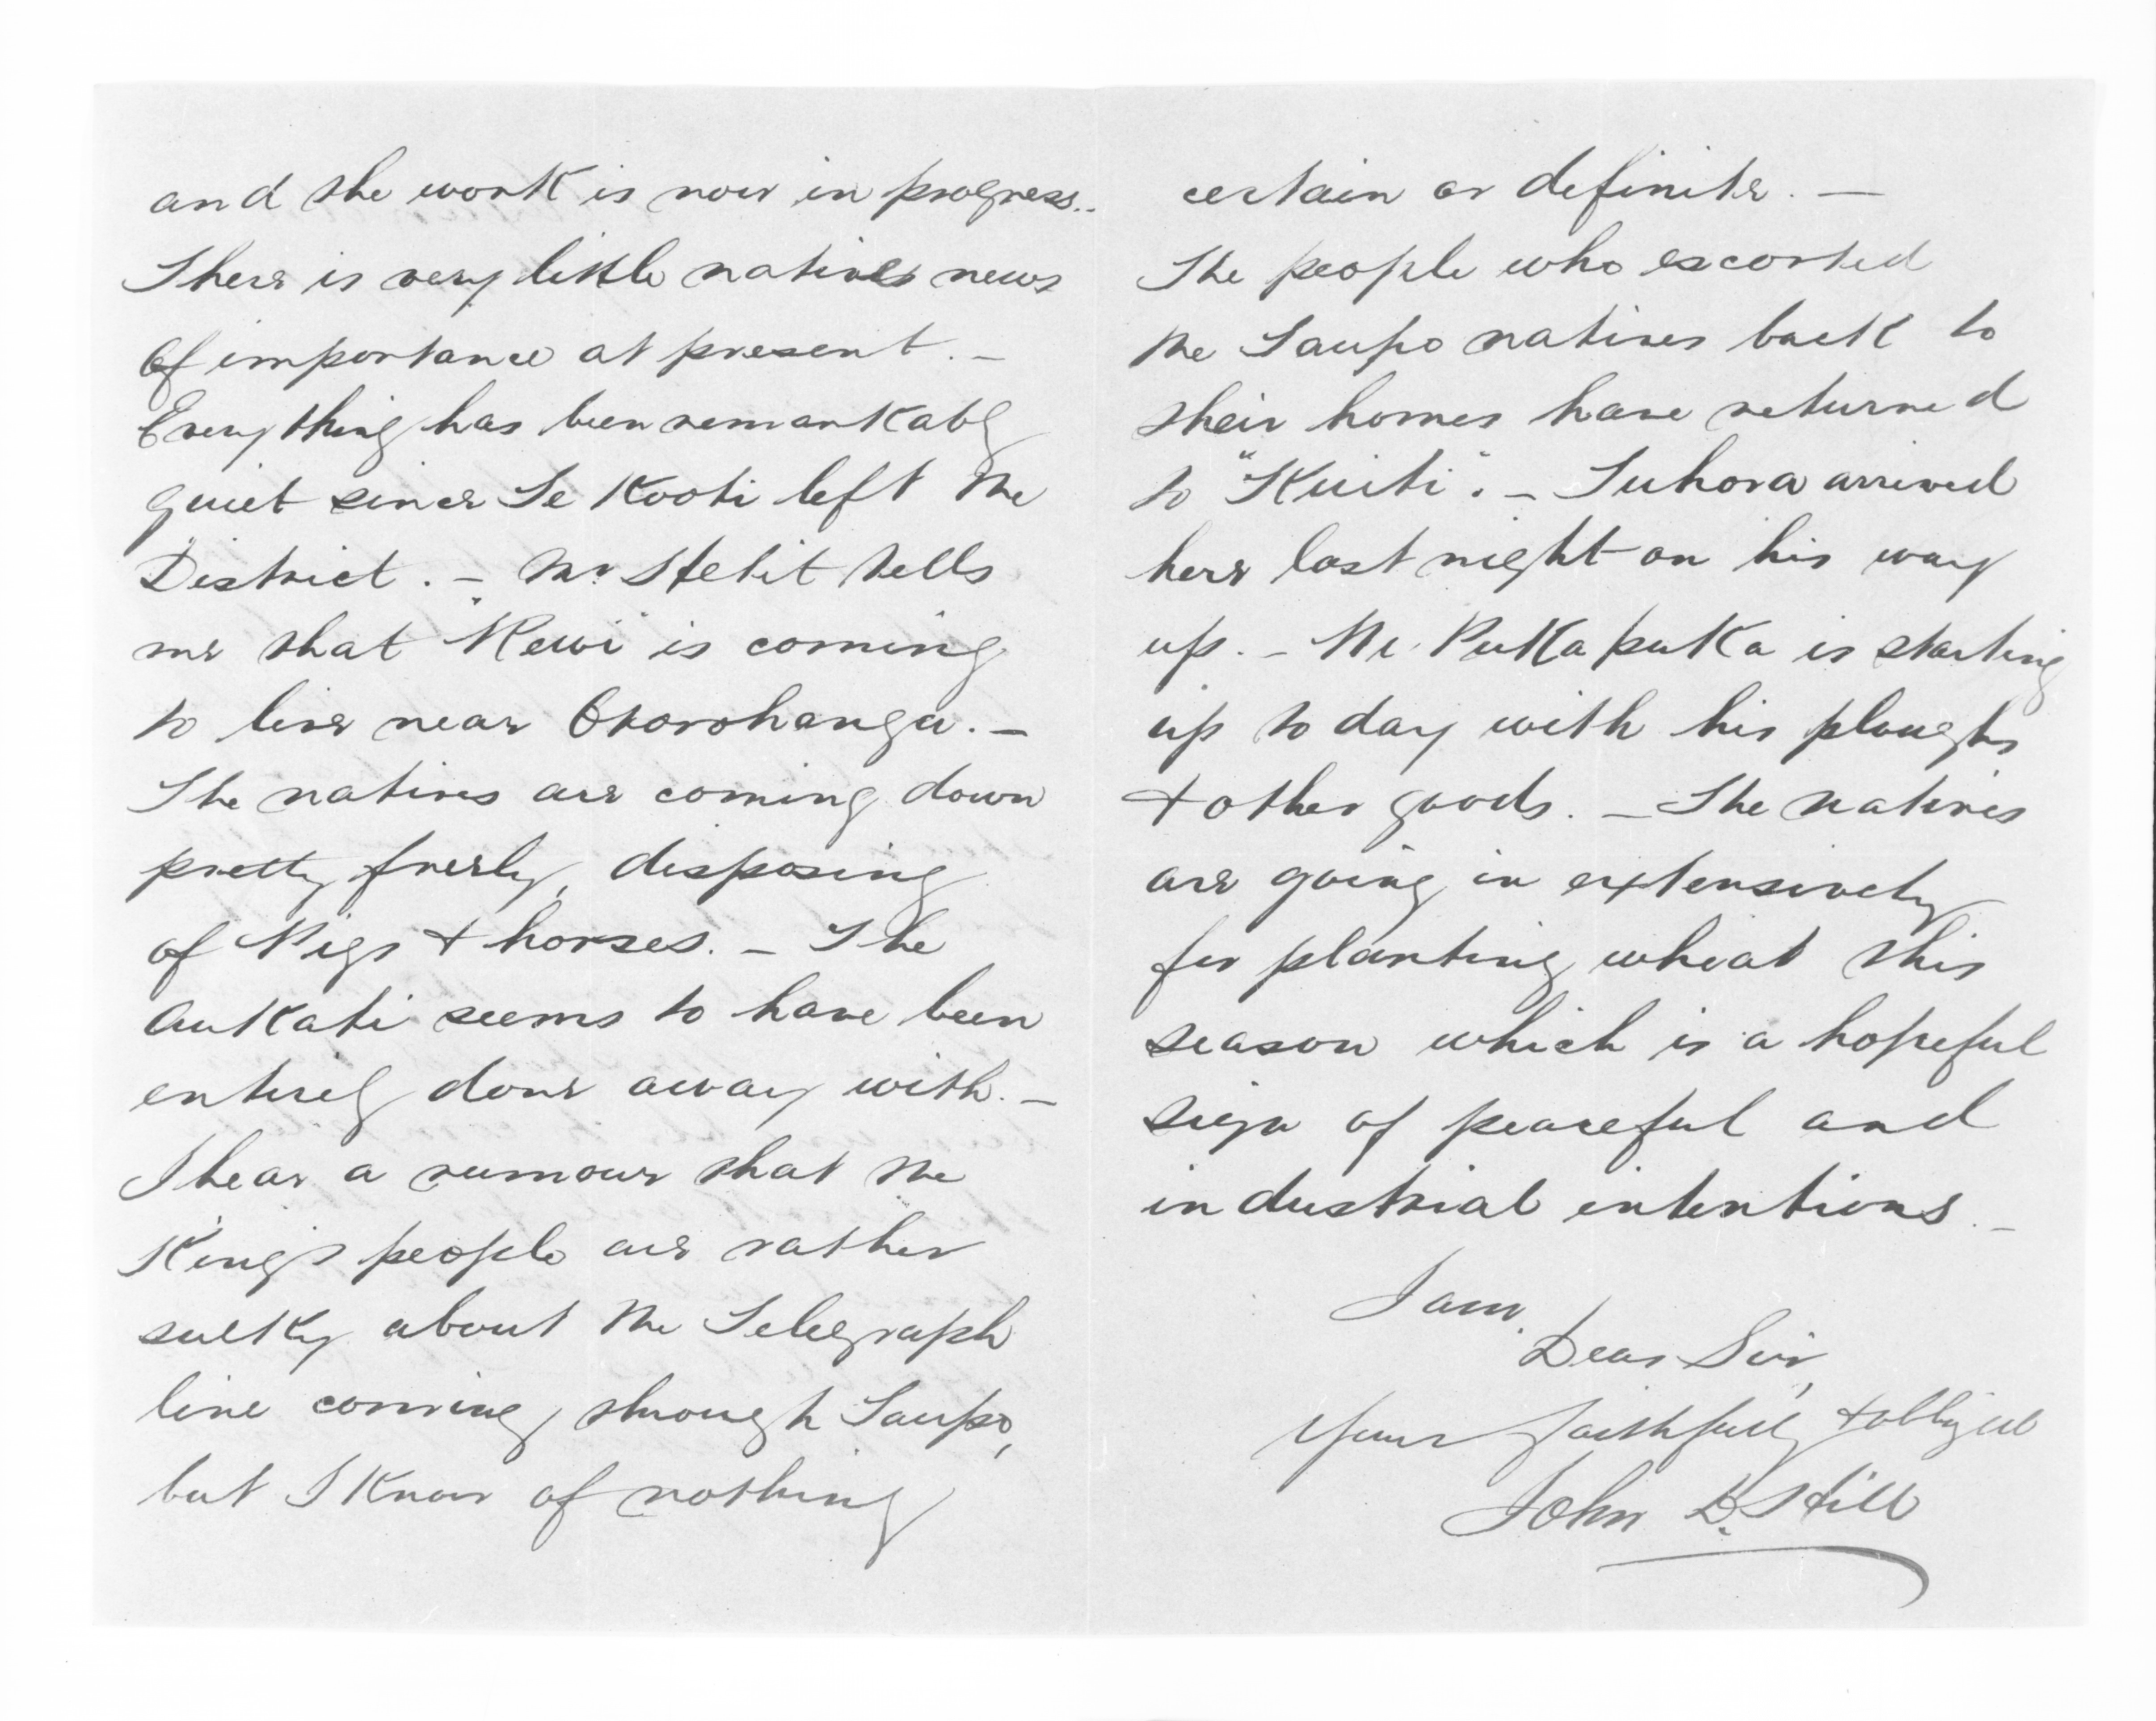 and the work is now in progress.
There is very little native news
of importance at present. –
Everything has been remarkably
quiet since Te Kooti left the
District. – Mr. Hetit tells
me that "Rewi" is coming
to live near Otorohanga. –
The natives are coming down
pretty freely, disposing
of Pigs & horses. – The
aukati seems to have been
entirely done away with. –
I hear a rumour that the
King's people are rather
sulky about the Telegraph
line coming through Taupo,
but I know of nothing
certain or definite. –
The people who escorted
the Taupo natives back to
their homes have returned
to "Kuiti". – Tuhora arrived
here last night on his way
up. – Te Pukapuka is starting
up to day with his ploughs
& other goods. – The natives
are going in extensively
for planting wheat this
season which is a hopeful
sign of peaceful and
industrial intentions. –
I am,
Dear Sir,
Yours faithfully & obliged
John D. Hill